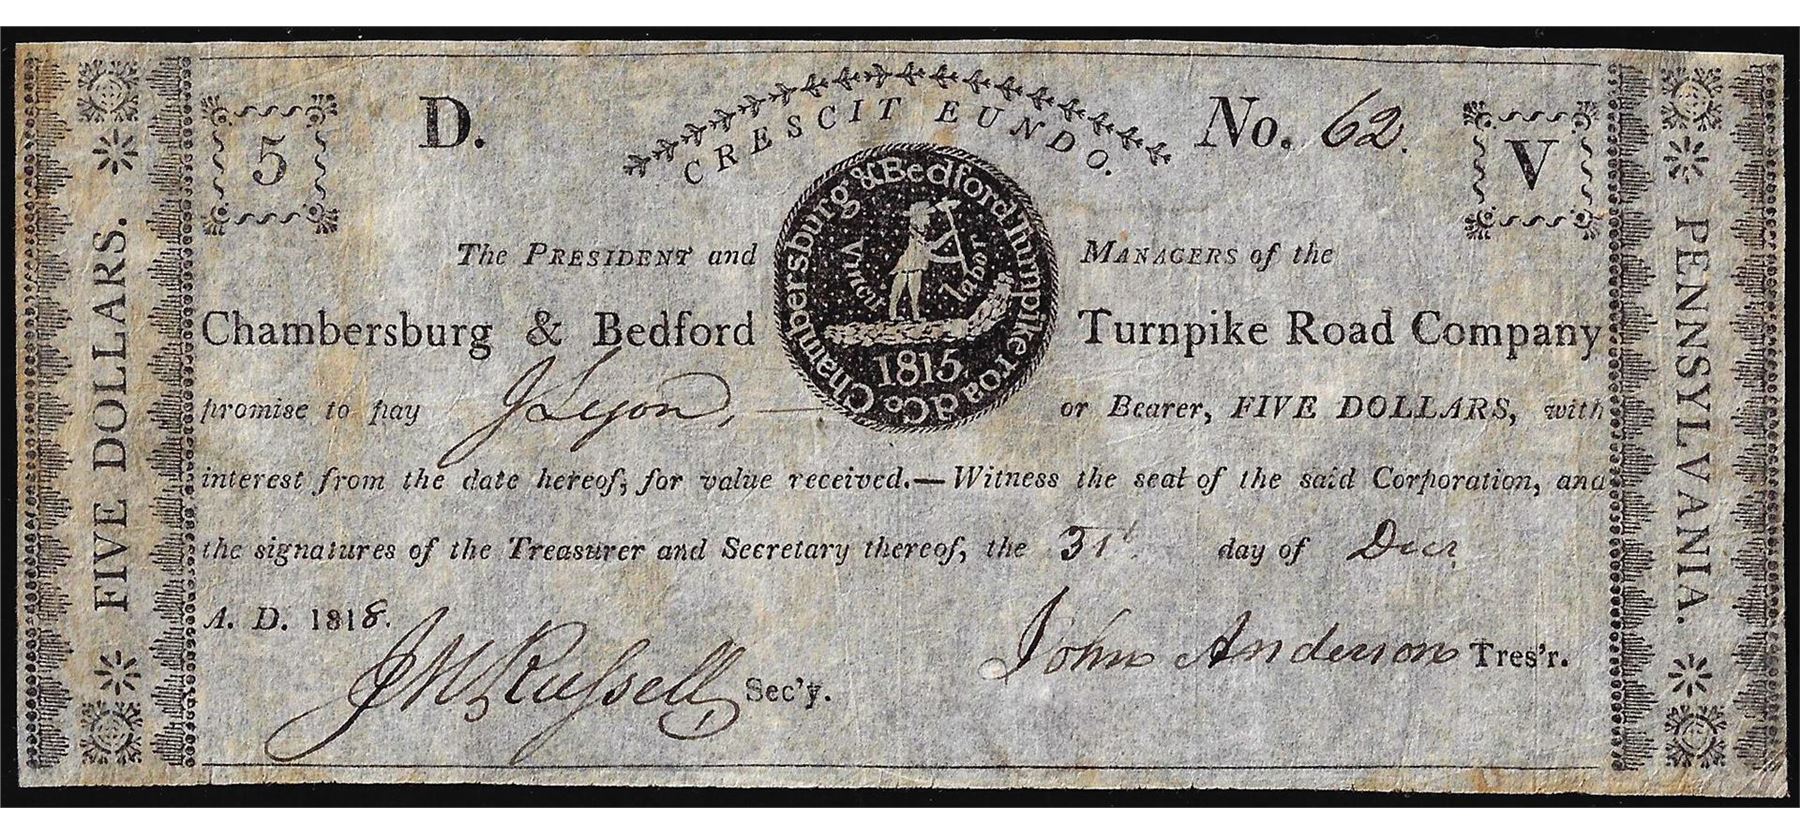 CRESCIT EUNDO.
5 D. No. 62. V
Chambersburg & Bedford Turnpike road Co.
Vincit labor
1815.
The PRESIDENT and MANAGERS of the
Chambersburg & Bedford Turnpike Road Company
promise to pay J Lyon, or Bearer, FIVE DOLLARS, with
interest from the date hereof, for value received.—Witness the seal of the said Corporation, and
the signatures of the Treasurer and Secretary thereof, the 31st day of Decr
A. D. 1818.
J M Russell Sec'y. John Anderson Tres'r.
FIVE DOLLARS.
PENNSYLVANIA.